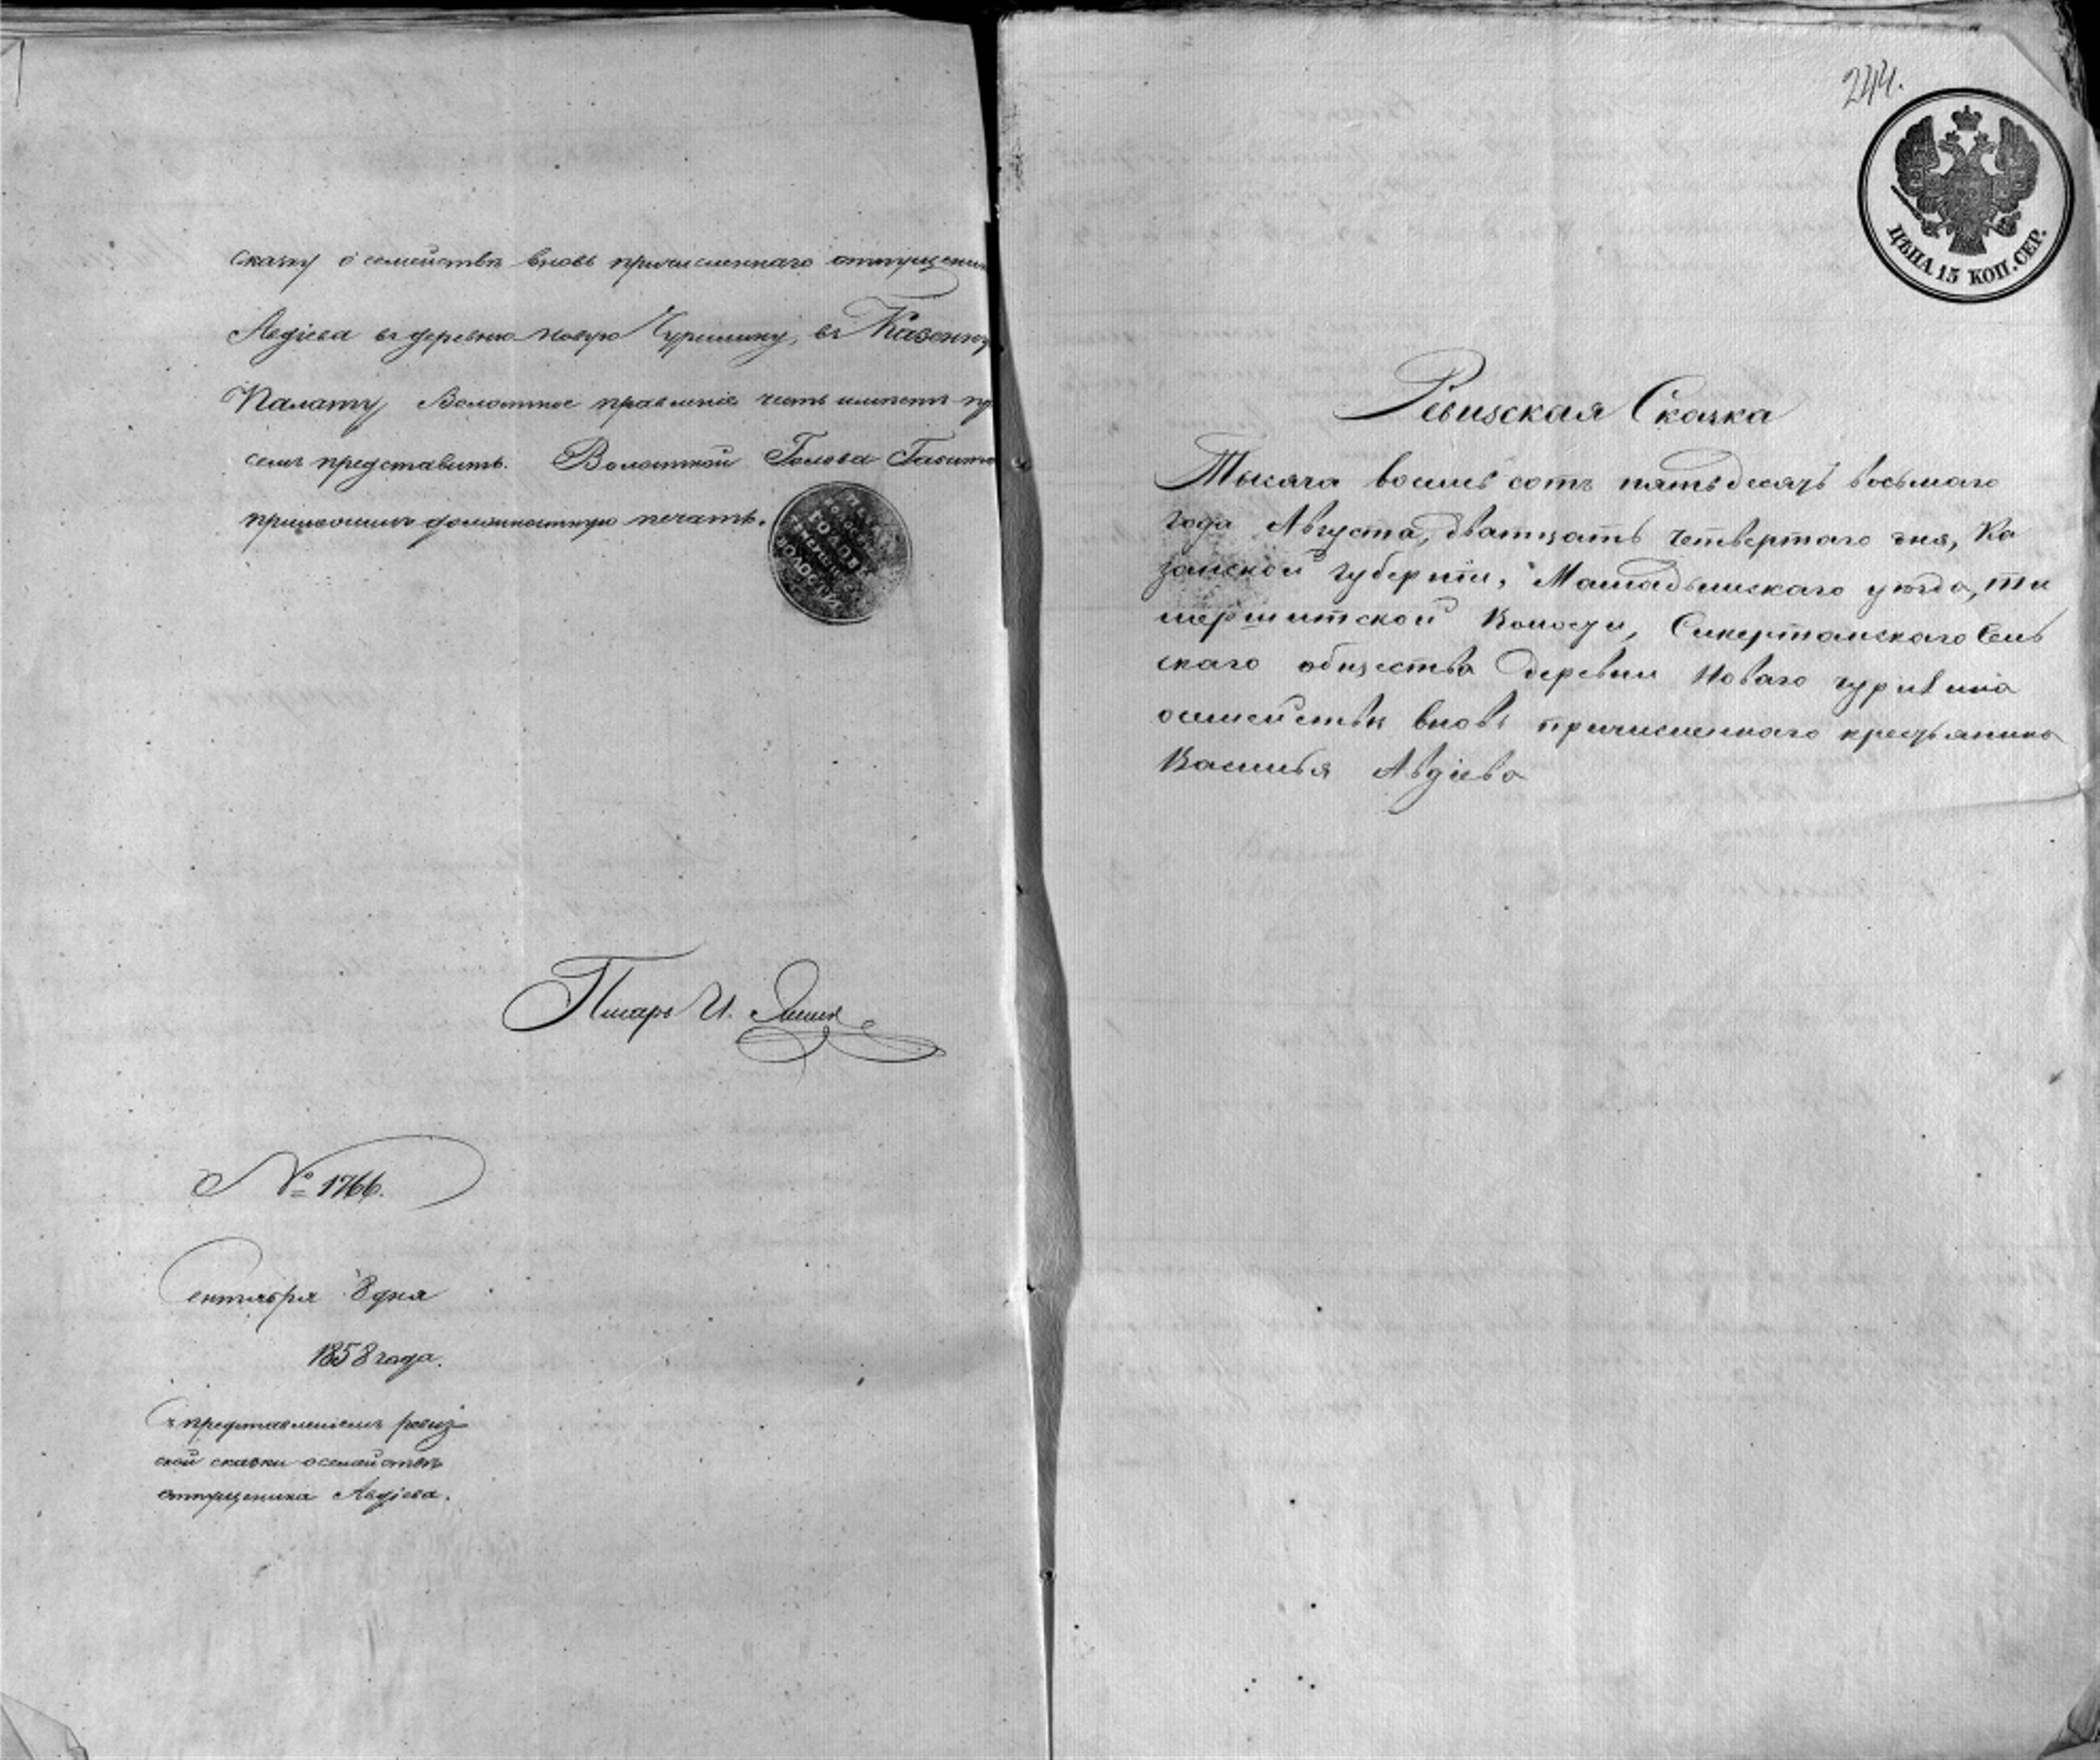 сказку о семействѣ вновь причисленнаго отпущеника
Авдіева въ деревню Новую Чурилину, въ Казенную
Палату Волостное правленіе честь имѣетъ при
семъ представить. Волостной Голова
приложилъ должностную печать.
ГОЛОВЫ
ВОЛОСТИ
Писарь И.
№ 1766.
Сентября 8 дня
1858 года.
Съ представленіемъ ревиз
ской сказки о семействѣ
отпущеника Авдіева.
244.
ЦѢНА 15 КОП. СЕР.
Ревизская Сказка
Тысяча восемь сотъ пятьдесятъ восьмаго
года Августа, дватцать четвертаго дня, Ка
занской губерніи, Мамадышскаго уѣзда, ти
мершитской Волости, Сикертанскаго Сель
скаго общества деревни Новаго чурилина
о семействѣ вновь причисленнаго крестьянина
Василья Авдіева